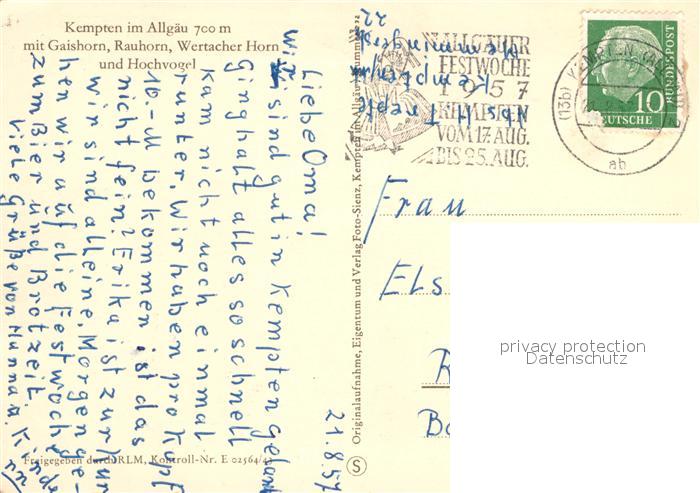 Kempten im Allgäu 700 m
mit Gaishorn, Rauhorn, Wertacher Horn
und Hochvogel
Liebe Oma!
wir sind gut in Kempten gelandet
Ging halt alles so schnell
kam nicht noch einmal
runter. Wir haben pro Kopf
10.-M bekommen ist das
nicht fein? Erika ist zur Kur
wir sind alleine. Morgen ge-
hen wir auf die Festwoche
zum Bier und Brotzeit.
Viele Grüße von Hanna u. Kinder
21.8.57
Freigegeben durch RLM, Kontroll-Nr. E 02564/42
Originalaufnahme, Eigentum und Verlag Foto-Sienz, Kempten im Allgäu
Abs. H.
Kempten
22
ALLGÄUER
FESTWOCHE
1957
KEMPTEN
VOM 17. AUG.
BIS 25. AUG.
(13b) KEMPTEN (ALLGÄU)
ab
10
DEUTSCHE
BUNDESPOST
Frau
Els
R
Ba
S
privacy protection
Datenschutz